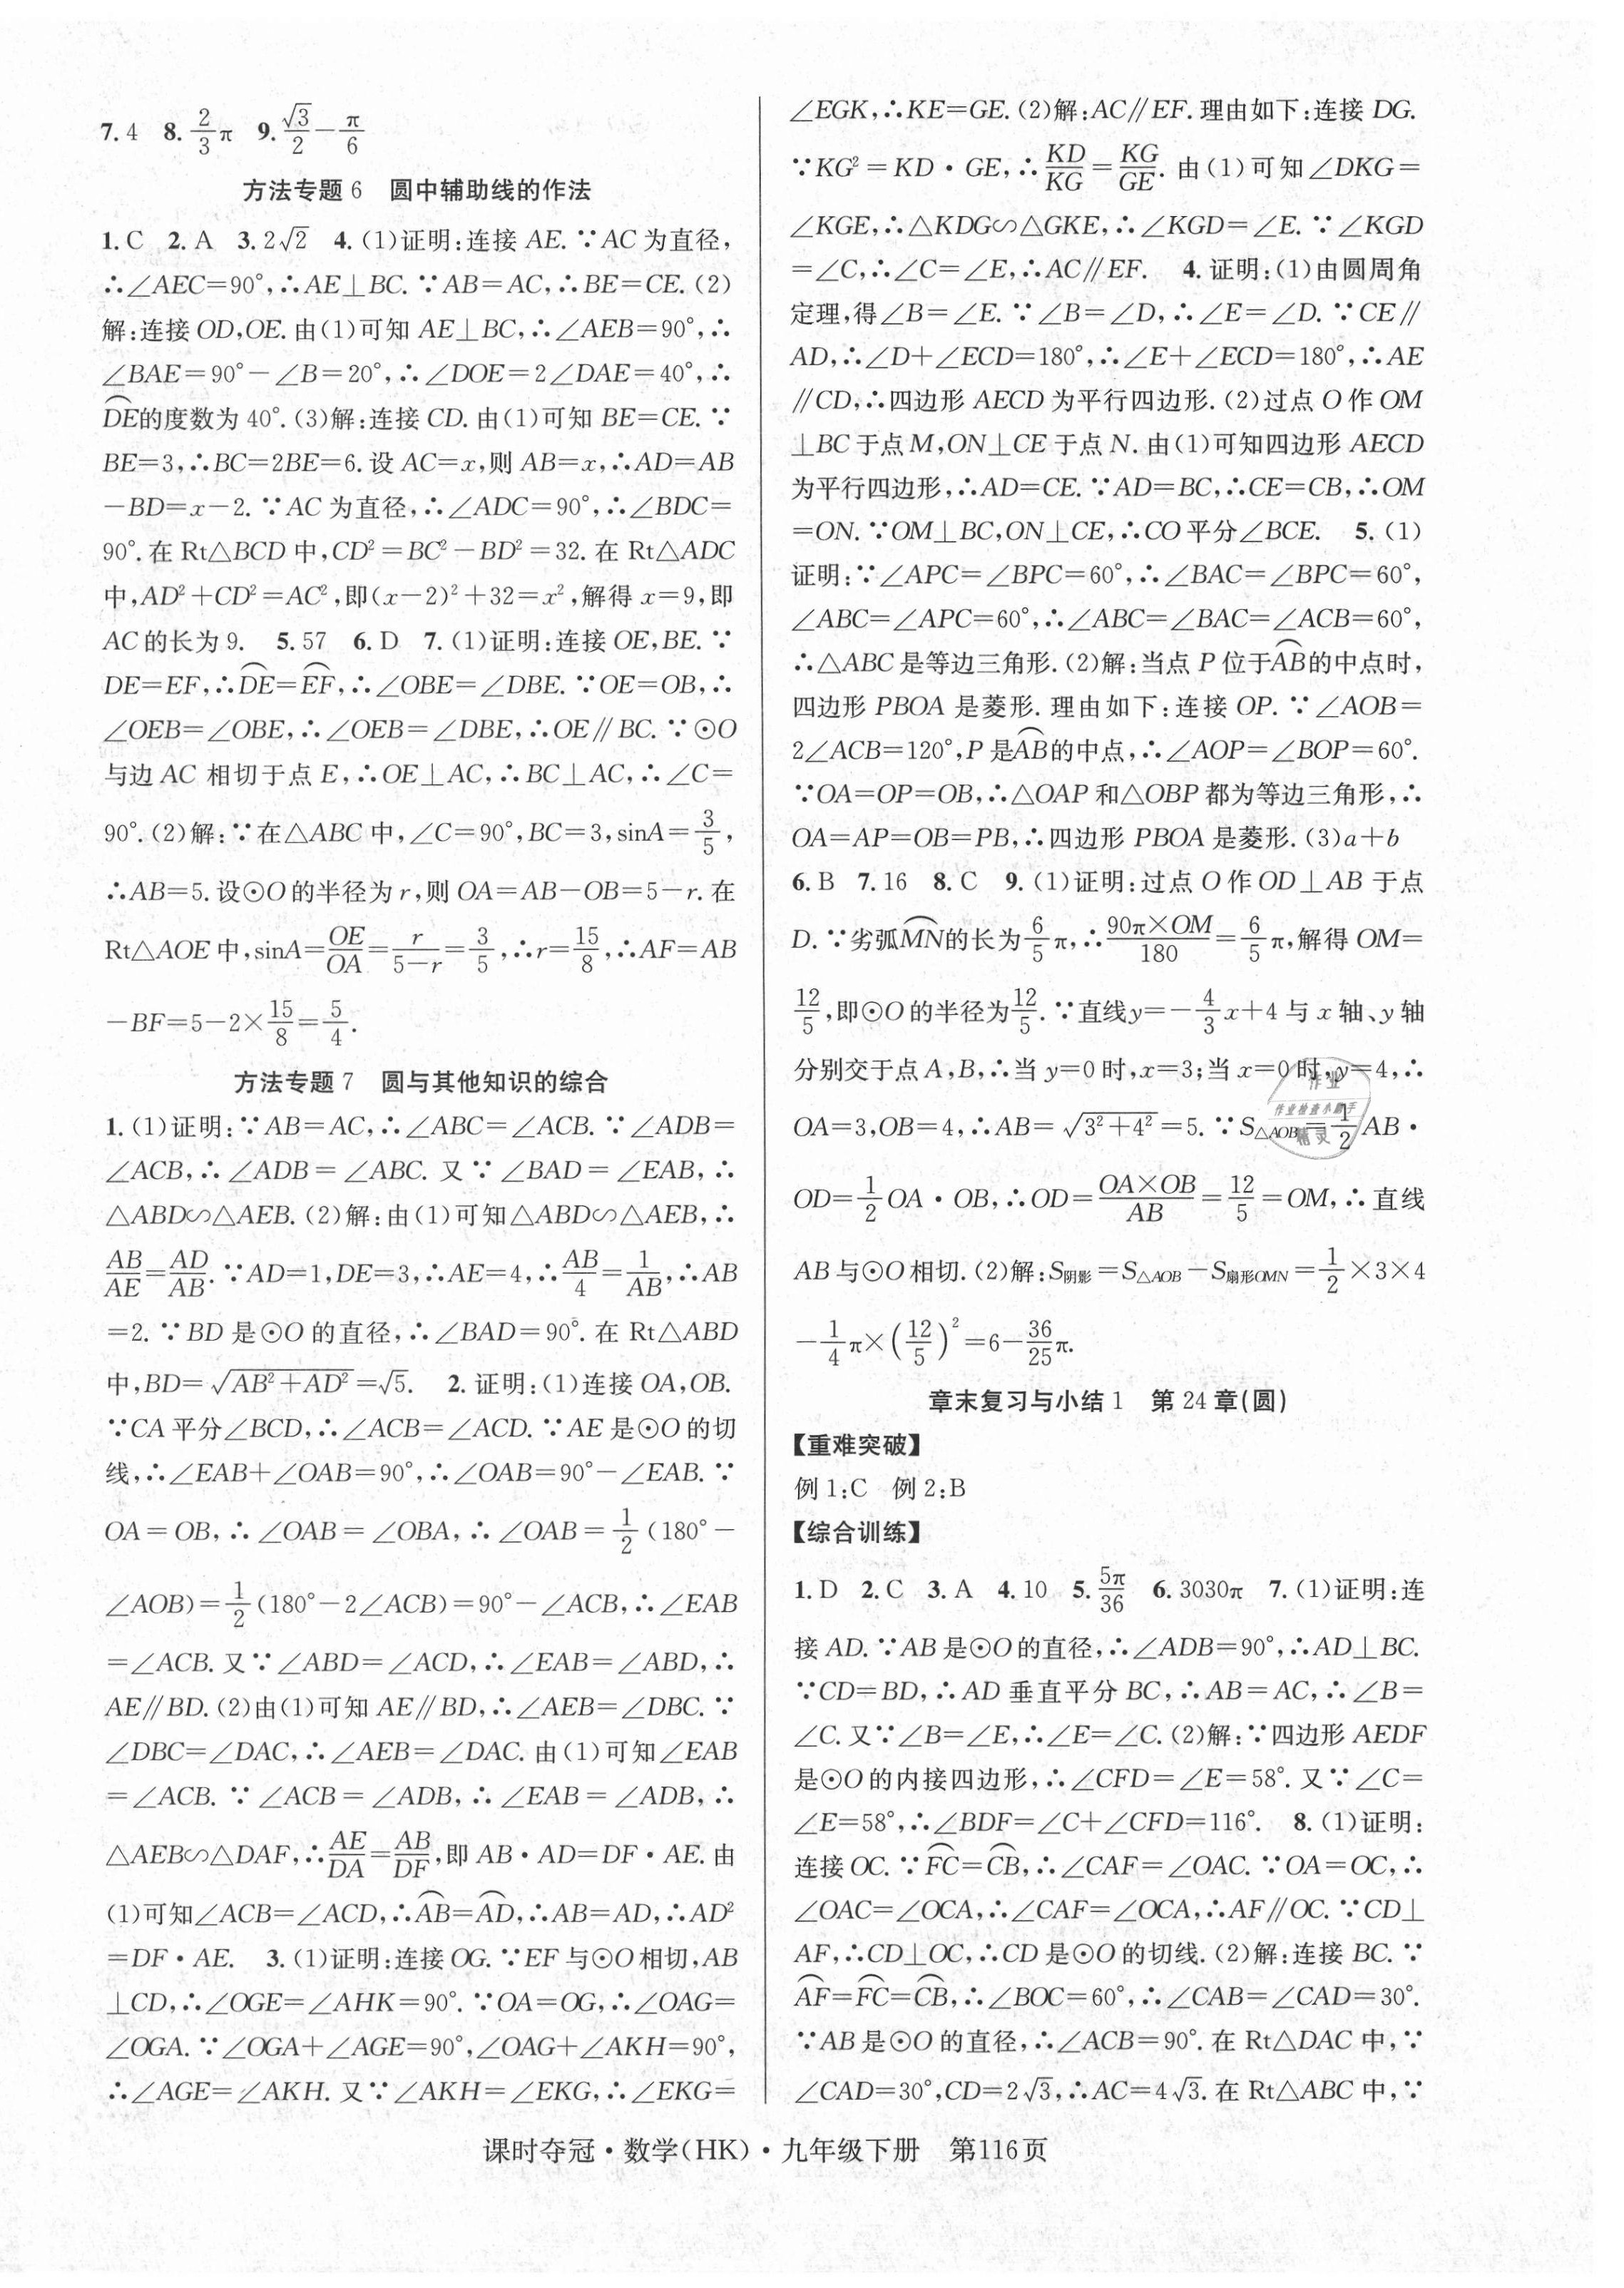 7. 4　8. 2/3 π　9. √3/2 − π/6
方法专题 6　圆中辅助线的作法
1. C　2. A　3. 2√2　4. (1)证明:连接 AE. ∵AC 为直径,
∴∠AEC=90°,∴AE⊥BC. ∵AB=AC,∴BE=CE. (2)
解:连接 OD,OE. 由(1)可知 AE⊥BC,∴∠AEB=90°,∴
∠BAE=90°−∠B=20°,∴∠DOE=2∠DAE=40°,∴
⌒DE的度数为 40°. (3)解:连接 CD. 由(1)可知 BE=CE. ∵
BE=3,∴BC=2BE=6. 设 AC=x,则 AB=x,∴AD=AB
−BD=x−2. ∵AC 为直径,∴∠ADC=90°,∴∠BDC=
90°. 在 Rt△BCD 中,CD²=BC²−BD²=32. 在 Rt△ADC
中,AD²+CD²=AC²,即(x−2)²+32=x²,解得 x=9,即
AC 的长为 9.　5. 57　6. D　7. (1)证明:连接 OE,BE. ∵
DE=EF,∴⌒DE=⌒EF,∴∠OBE=∠DBE. ∵OE=OB,∴
∠OEB=∠OBE,∴∠OEB=∠DBE,∴OE∥BC. ∵⊙O
与边 AC 相切于点 E,∴OE⊥AC,∴BC⊥AC,∴∠C=
90°. (2)解:∵在△ABC 中,∠C=90°,BC=3,sinA=3/5,
∴AB=5. 设⊙O 的半径为 r,则 OA=AB−OB=5−r. 在
Rt△AOE 中,sinA=OE/OA=r/(5−r)=3/5,∴r=15/8,∴AF=AB
−BF=5−2×15/8=5/4.
方法专题 7　圆与其他知识的综合
1. (1)证明:∵AB=AC,∴∠ABC=∠ACB. ∵∠ADB=
∠ACB,∴∠ADB=∠ABC. 又∵∠BAD=∠EAB,∴
△ABD∽△AEB. (2)解:由(1)可知△ABD∽△AEB,∴
AB/AE=AD/AB. ∵AD=1,DE=3,∴AE=4,∴AB/4=1/AB,∴AB
=2. ∵BD 是⊙O 的直径,∴∠BAD=90°. 在 Rt△ABD
中,BD=√(AB²+AD²)=√5.　2. 证明:(1)连接 OA,OB.
∵CA 平分∠BCD,∴∠ACB=∠ACD. ∵AE 是⊙O 的切
线,∴∠EAB+∠OAB=90°,∴∠OAB=90°−∠EAB. ∵
OA=OB,∴∠OAB=∠OBA,∴∠OAB=1/2(180°−
∠AOB)=1/2(180°−2∠ACB)=90°−∠ACB,∴∠EAB
=∠ACB. 又∵∠ABD=∠ACD,∴∠EAB=∠ABD,∴
AE∥BD. (2)由(1)可知 AE∥BD,∴∠AEB=∠DBC. ∵
∠DBC=∠DAC,∴∠AEB=∠DAC. 由(1)可知∠EAB
=∠ACB. ∵∠ACB=∠ADB,∴∠EAB=∠ADB,∴
△AEB∽△DAF,∴AE/DA=AB/DF,即 AB·AD=DF·AE. 由
(1)可知∠ACB=∠ACD,∴⌒AB=⌒AD,∴AB=AD,∴AD²
=DF·AE.　3. (1)证明:连接 OG. ∵EF 与⊙O 相切,AB
⊥CD,∴∠OGE=∠AHK=90°. ∵OA=OG,∴∠OAG=
∠OGA. ∵∠OGA+∠AGE=90°,∠OAG+∠AKH=90°,
∴∠AGE=∠AKH. 又∵∠AKH=∠EKG,∴∠EKG=
∠EGK,∴KE=GE. (2)解:AC∥EF. 理由如下:连接 DG.
∵KG²=KD·GE,∴KD/KG=KG/GE. 由(1)可知∠DKG=
∠KGE,∴△KDG∽△GKE,∴∠KGD=∠E. ∵∠KGD
=∠C,∴∠C=∠E,∴AC∥EF.　4. 证明:(1)由圆周角
定理,得∠B=∠E. ∵∠B=∠D,∴∠E=∠D. ∵CE∥
AD,∴∠D+∠ECD=180°,∴∠E+∠ECD=180°,∴AE
∥CD,∴四边形 AECD 为平行四边形. (2)过点 O 作 OM
⊥BC 于点 M,ON⊥CE 于点 N. 由(1)可知四边形 AECD
为平行四边形,∴AD=CE. ∵AD=BC,∴CE=CB,∴OM
=ON. ∵OM⊥BC,ON⊥CE,∴CO 平分∠BCE.　5. (1)
证明:∵∠APC=∠BPC=60°,∴∠BAC=∠BPC=60°,
∠ABC=∠APC=60°,∴∠ABC=∠BAC=∠ACB=60°,
∴△ABC 是等边三角形. (2)解:当点 P 位于⌒AB的中点时,
四边形 PBOA 是菱形. 理由如下:连接 OP. ∵∠AOB=
2∠ACB=120°,P 是⌒AB的中点,∴∠AOP=∠BOP=60°.
∵OA=OP=OB,∴△OAP 和△OBP 都为等边三角形,∴
OA=AP=OB=PB,∴四边形 PBOA 是菱形. (3)a+b
6. B　7. 16　8. C　9. (1)证明:过点 O 作 OD⊥AB 于点
D. ∵劣弧⌒MN的长为6/5 π,∴90π×OM/180=6/5 π,解得 OM=
12/5,即⊙O 的半径为12/5. ∵直线y=−4/3 x+4 与 x 轴、y 轴
分别交于点 A,B,∴当 y=0 时,x=3;当 x=0 时,y=4,∴
OA=3,OB=4,∴AB=√(3²+4²)=5. ∵S△AOB=1/2 AB·
OD=1/2 OA·OB,∴OD=OA×OB/AB=12/5=OM,∴直线
AB 与⊙O 相切. (2)解:S阴影=S△AOB−S扇形OMN=1/2×3×4
−1/4 π×(12/5)²=6−36/25 π.
章末复习与小结 1　第 24 章(圆)
【重难突破】
例 1:C　例 2:B
【综合训练】
1. D　2. C　3. A　4. 10　5. 5π/36　6. 3030π　7. (1)证明:连
接 AD. ∵AB 是⊙O 的直径,∴∠ADB=90°,∴AD⊥BC.
∵CD=BD,∴AD 垂直平分 BC,∴AB=AC,∴∠B=
∠C. 又∵∠B=∠E,∴∠E=∠C. (2)解:∵四边形 AEDF
是⊙O 的内接四边形,∴∠CFD=∠E=58°. 又∵∠C=
∠E=58°,∴∠BDF=∠C+∠CFD=116°.　8. (1)证明:
连接 OC. ∵⌒FC=⌒CB,∴∠CAF=∠OAC. ∵OA=OC,∴
∠OAC=∠OCA,∴∠CAF=∠OCA,∴AF∥OC. ∵CD⊥
AF,∴CD⊥OC,∴CD 是⊙O 的切线. (2)解:连接 BC. ∵
⌒AF=⌒FC=⌒CB,∴∠BOC=60°,∴∠CAB=∠CAD=30°.
∵AB 是⊙O 的直径,∴∠ACB=90°. 在 Rt△DAC 中,∵
∠CAD=30°,CD=2√3,∴AC=4√3. 在 Rt△ABC 中,∵
作业
作业检查小助手
精灵
课时夺冠·数学(HK)·九年级下册　第116页